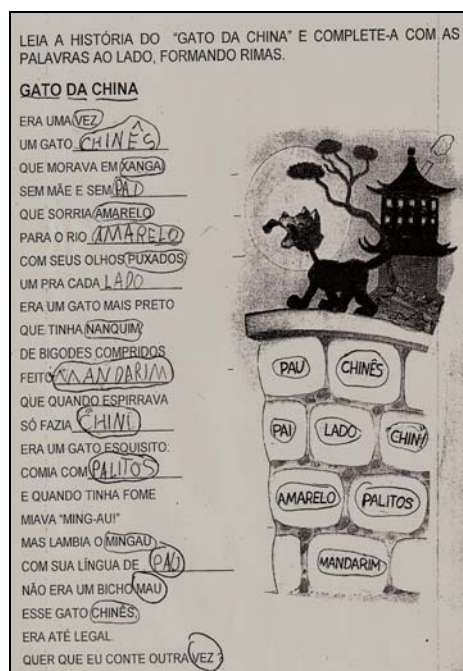 LEIA A HISTÓRIA DO "GATO DA CHINA" E COMPLETE-A COM AS
PALAVRAS AO LADO, FORMANDO RIMAS.
GATO DA CHINA
ERA UMA VEZ
UM GATO CHINÊS
QUE MORAVA EM XANGA
SEM MÃE E SEM PAI
QUE SORRIA AMARELO
PARA O RIO AMARELO
COM SEUS OLHOS PUXADOS
UM PRA CADA LADO
ERA UM GATO MAIS PRETO
QUE TINHA NANQUIM
DE BIGODES COMPRIDOS
FEITO MANDARIM
QUE QUANDO ESPIRRAVA
SÓ FAZIA CHIN!
ERA UM GATO ESQUISITO:
COMIA COM PALITOS
E QUANDO TINHA FOME
MIAVA "MING-AU!"
MAS LAMBIA O MINGAU
COM SUA LÍNGUA DE PAU
NÃO ERA UM BICHO MAU
ESSE GATO CHINÊS,
ERA ATÉ LEGAL.
QUER QUE EU CONTE OUTRA VEZ ?
PAU
CHINÊS
PAI
LADO
CHIN!
AMARELO
PALITOS
MANDARIM